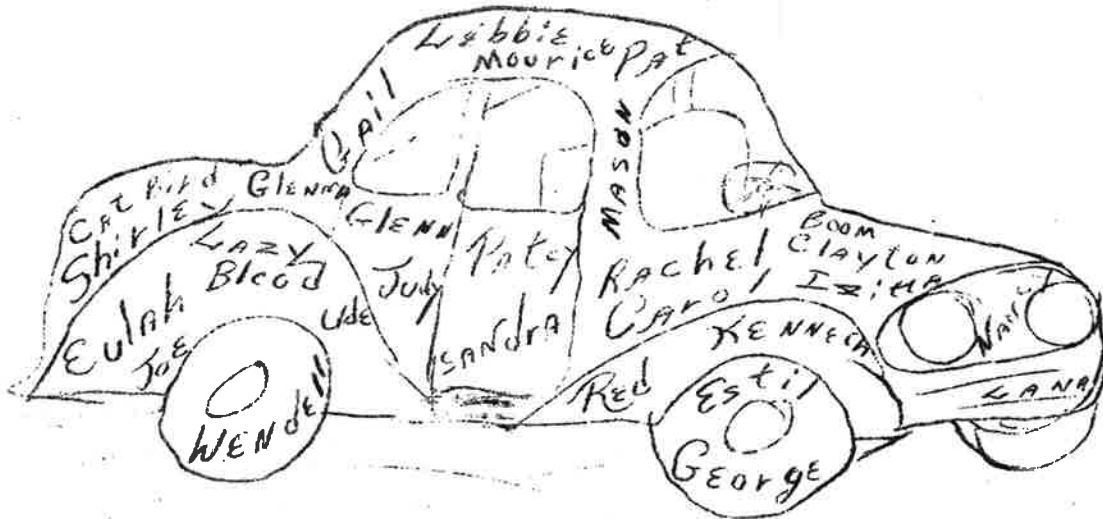 Lebbie
Mourice
Pat
Gail
MASON
Cat Bird
Shirley
Glenna
Glenn
LAZY
Blood
Eulah
Joe
Ude
Judy
Patcy
SANdrA
RACHEL
Carol
Boom
Clayton
IziHA
KENNEth
Red
Estil
George
WENdell
LANA